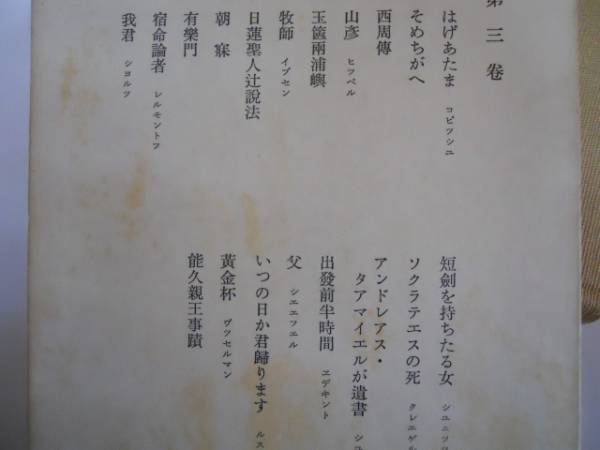 第三卷
はげあたま コピツシユ
そめちがへ
西周傳
山彦 ヒツペル
玉篋兩浦嶼
牧師 イブセン
日蓮聖人辻説法
朝寐
有樂門
宿命論者 レルモントフ
我君 シヨルツ
短劍を持ちたる女
ソクラテエスの死
アンドレアス・
タアマイエルが遺書
出發前半時間 ヱデキント
父 シエエフエル
いつの日か君歸ります
黃金杯 ワツセルマン
能久親王事蹟